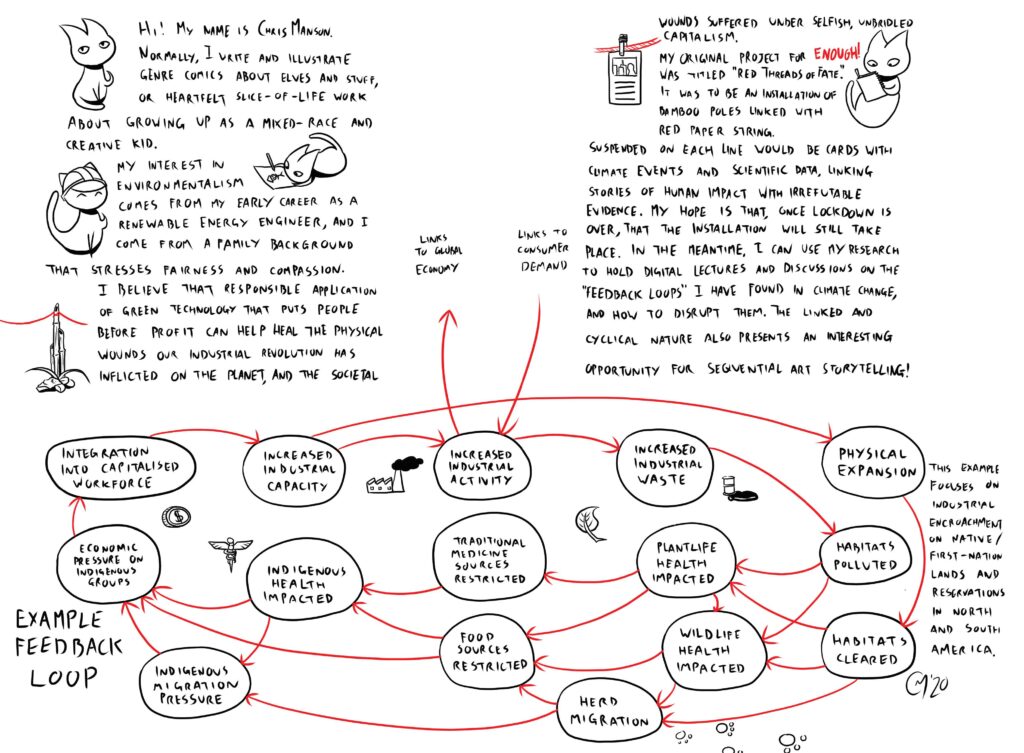 HI! MY NAME IS CHRIS MANSON.
NORMALLY, I WRITE AND ILLUSTRATE
GENRE COMICS ABOUT ELVES AND STUFF,
OR HEARTFELT SLICE-OF-LIFE WORK
ABOUT GROWING UP AS A MIXED-RACE AND
CREATIVE KID.
MY INTEREST IN
ENVIRONMENTALISM
COMES FROM MY EARLY CAREER AS A
RENEWABLE ENERGY ENGINEER, AND I
COME FROM A FAMILY BACKGROUND
THAT STRESSES FAIRNESS AND COMPASSION.
I BELIEVE THAT RESPONSIBLE APPLICATION
OF GREEN TECHNOLOGY THAT PUTS PEOPLE
BEFORE PROFIT CAN HELP HEAL THE PHYSICAL
WOUNDS OUR INDUSTRIAL REVOLUTION HAS
INFLICTED ON THE PLANET, AND THE SOCIETAL
WOUNDS SUFFERED UNDER SELFISH, UNBRIDLED
CAPITALISM.
MY ORIGINAL PROJECT FOR ENOUGH!
WAS TITLED "RED THREADS OF FATE."
IT WAS TO BE AN INSTALLATION OF
BAMBOO POLES LINKED WITH
RED PAPER STRING.
SUSPENDED ON EACH LINE WOULD BE CARDS WITH
CLIMATE EVENTS AND SCIENTIFIC DATA, LINKING
STORIES OF HUMAN IMPACT WITH IRREFUTABLE
EVIDENCE. MY HOPE IS THAT, ONCE LOCKDOWN IS
OVER, THAT THE INSTALLATION WILL STILL TAKE
PLACE. IN THE MEANTIME, I CAN USE MY RESEARCH
TO HOLD DIGITAL LECTURES AND DISCUSSIONS ON THE
"FEEDBACK LOOPS" I HAVE FOUND IN CLIMATE CHANGE,
AND HOW TO DISRUPT THEM. THE LINKED AND
CYCLICAL NATURE ALSO PRESENTS AN INTERESTING
OPPORTUNITY FOR SEQUENTIAL ART STORYTELLING!
LINKS
TO GLOBAL
ECONOMY
LINKS TO
CONSUMER
DEMAND
INTEGRATION
INTO CAPITALISED
WORKFORCE
INCREASED
INDUSTRIAL
CAPACITY
INCREASED
INDUSTRIAL
ACTIVITY
INCREASED
INDUSTRIAL
WASTE
PHYSICAL
EXPANSION
THIS EXAMPLE
FOCUSES ON
INDUSTRIAL
ENCROACHMENT
ON NATIVE/
FIRST-NATION
LANDS AND
RESERVATIONS
IN NORTH
AND SOUTH
AMERICA.
ECONOMIC
PRESSURE ON
INDIGENOUS
GROUPS
INDIGENOUS
HEALTH
IMPACTED
TRADITIONAL
MEDICINE
SOURCES
RESTRICTED
PLANTLIFE
HEALTH
IMPACTED
HABITATS
POLLUTED
EXAMPLE
FEEDBACK
LOOP
INDIGENOUS
MIGRATION
PRESSURE
FOOD
SOURCES
RESTRICTED
WILDLIFE
HEALTH
IMPACTED
HABITATS
CLEARED
HERD
MIGRATION
CM'20